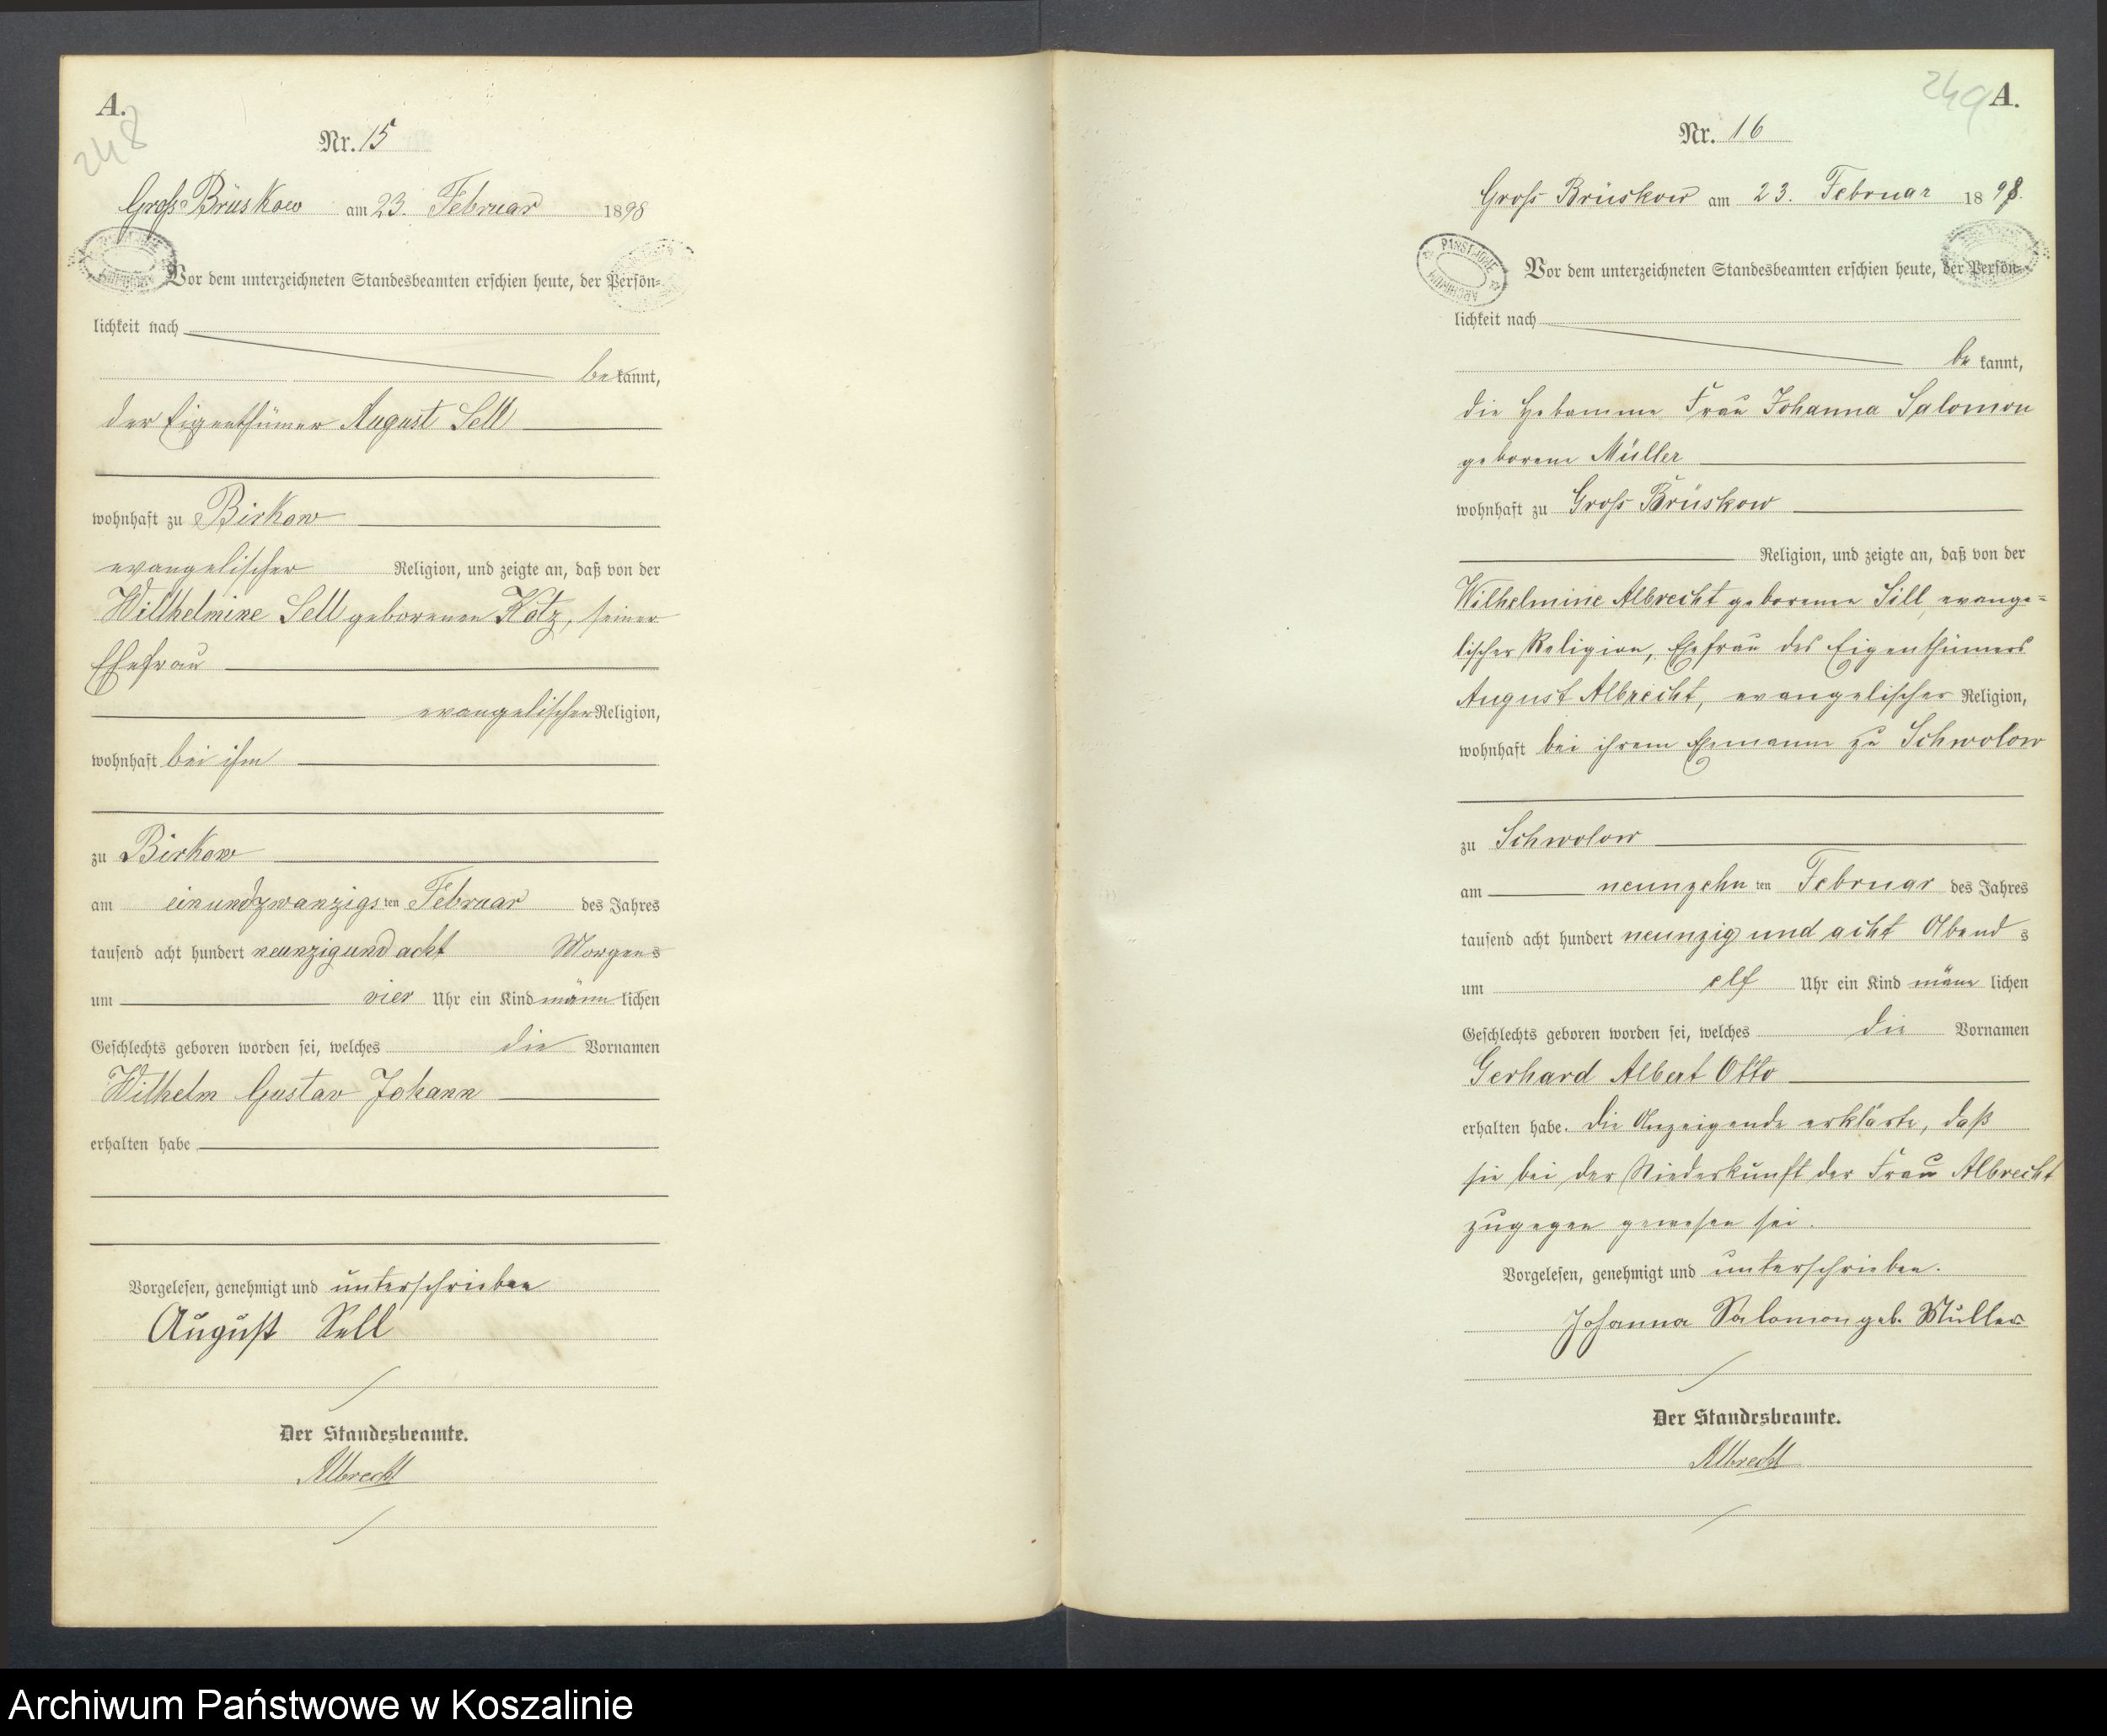 A.
248
Nr. 15
Groß Brüskow am 23. Februar 1898
Vor dem unterzeichneten Standesbeamten erschien heute, der Persön-
lichkeit nach
bekannt,
der Eigenthümer August Sell
wohnhaft zu Birkow
evangelischer Religion, und zeigte an, daß von der
Wilhelmine Sell geborenen Kotz, seiner
Ehefrau
evangelischer Religion,
wohnhaft bei ihm
zu Birkow
am einundzwanzigsten Februar des Jahres
tausend acht hundert neunzig und acht Morgens
um vier Uhr ein Kind männlichen
Geschlechts geboren worden sei, welches die Vornamen
Wilhelm Gustav Johann
erhalten habe
Vorgelesen, genehmigt und unterschrieben
August Sell
Der Standesbeamte.
Albrecht
249 A.
Nr. 16
Groß Brüskow am 23. Februar 1898.
PAŃSTWOWE
ARCHIWUM
Vor dem unterzeichneten Standesbeamten erschien heute, der Persön-
lichkeit nach
bekannt,
die Hebamme Frau Johanna Salomon
geborene Müller
wohnhaft zu Groß Brüskow
Religion, und zeigte an, daß von der
Wilhelmine Albrecht geborenen Sill, evange-
lischer Religion, Ehefrau des Eigenthümers
August Albrecht, evangelischer Religion,
wohnhaft bei ihrem Ehemanne zu Schwolow
zu Schwolow
am neunzehnten Februar des Jahres
tausend acht hundert neunzig und acht Abends
um elf Uhr ein Kind männlichen
Geschlechts geboren worden sei, welches die Vornamen
Gerhard Albert Otto
erhalten habe. Die Anzeigende erklärte, daß
sie bei der Niederkunft der Frau Albrecht
zugegen gewesen sei.
Vorgelesen, genehmigt und unterschrieben.
Johanna Salomon geb. Müller
Der Standesbeamte.
Albrecht
Archiwum Państwowe w Koszalinie